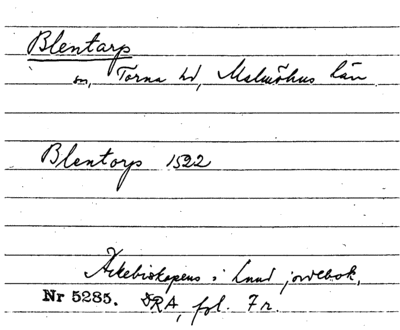 Blentarp
sn, Torna hd, Malmöhus län
Blentorp 1522
Ärkebiskopens i Lund jordebok,
Nr 5285. DRA, fol. 7 r.